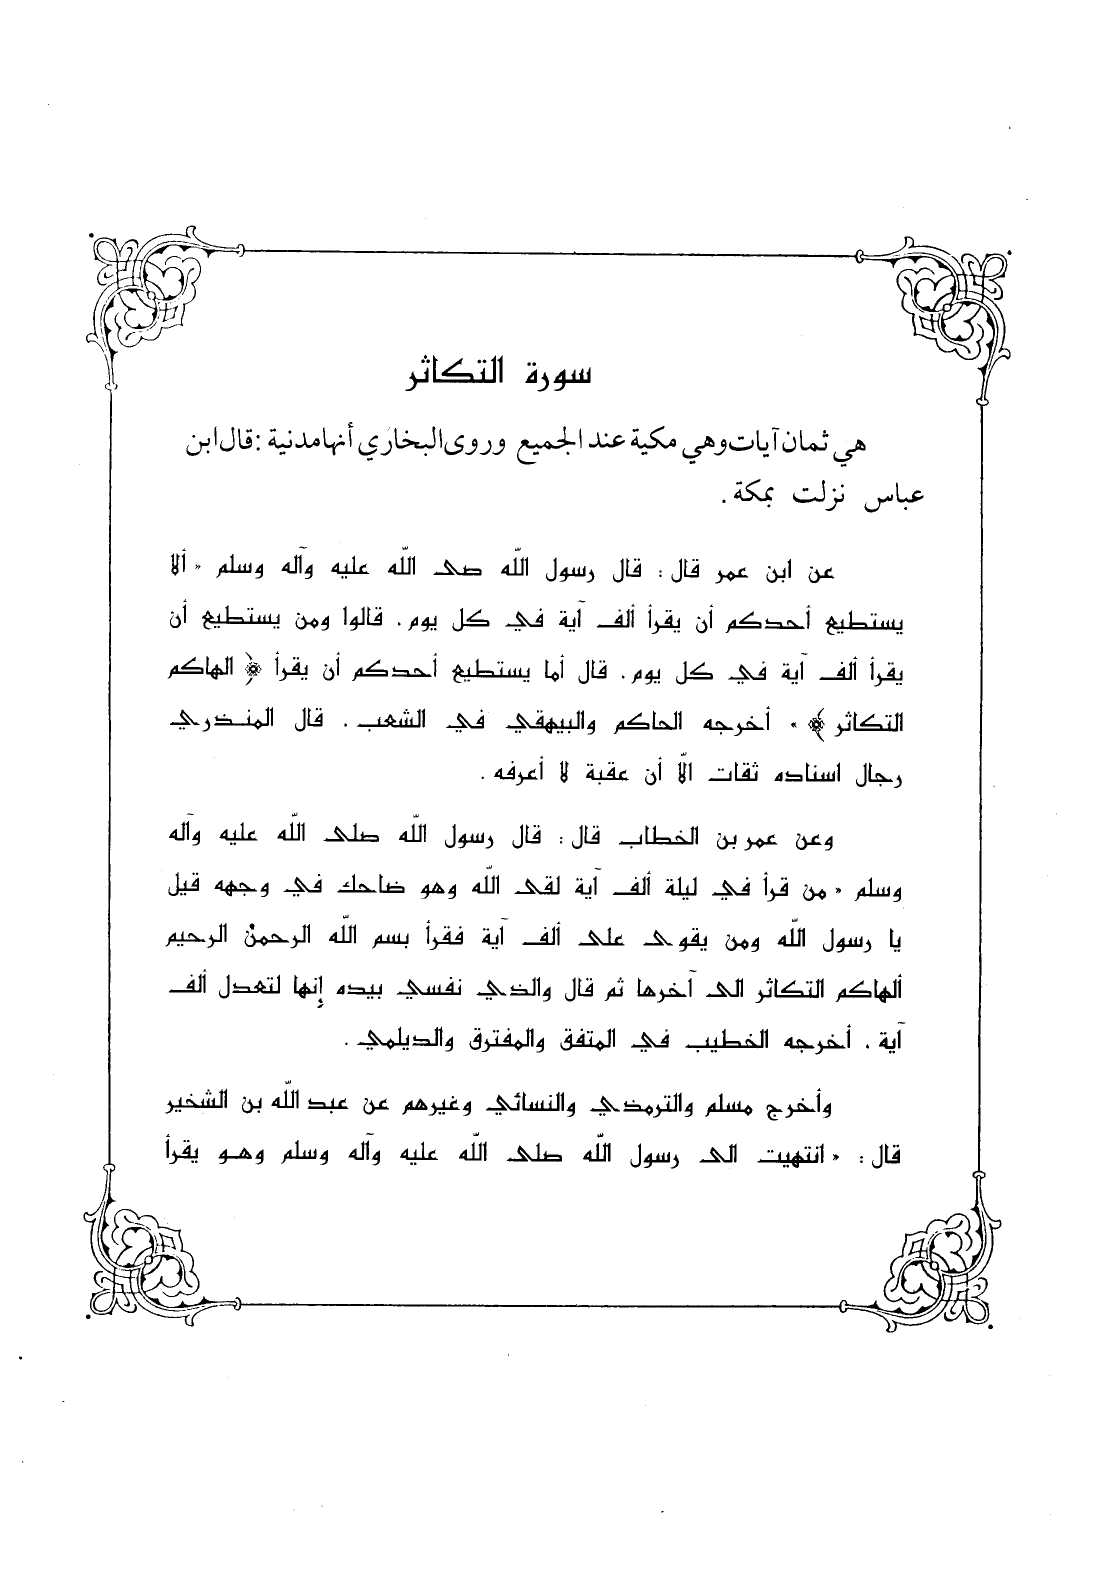 سورة التكاثر
هي ثمان آيات وهي مكية عند الجميع وروى البخاري أنها مدنية : قال ابن
عباس نزلت بمكة .
عن ابن عمر قال : قال رسول اللّه صلى اللّه عليه وآله وسلم « ألا
يستطيع أحدكم أن يقرأ ألف آية في كل يوم . قالوا ومن يستطيع أن
يقرأ ألف آية في كل يوم . قال أما يستطيع أحدكم أن يقرأ ﴿ الهاكم
التكاثر ﴾ » أخرجه الحاكم والبيهقي في الشعب . قال المنذري
رجال اسناده ثقات الّا أن عقبة لا أعرفه .
وعن عمر بن الخطاب قال : قال رسول اللّه صلى اللّه عليه وآله
وسلم « من قرأ في ليلة ألف آية لقى اللّه وهو ضاحك في وجهه قيل
يا رسول اللّه ومن يقوى على ألف آية فقرأ بسم اللّه الرحمنْ الرحيم
ألهاكم التكاثر الى آخرها ثم قال والذي نفسي بيده إنها لتعدل ألف
آية . أخرجه الخطيب في المتفق والمفترق والديلمي .
وأخرج مسلم والترمذي والنسائي وغيرهم عن عبد اللّه بن الشخير
قال : « انتهيت الى رسول اللّه صلى اللّه عليه وآله وسلم وهو يقرأ